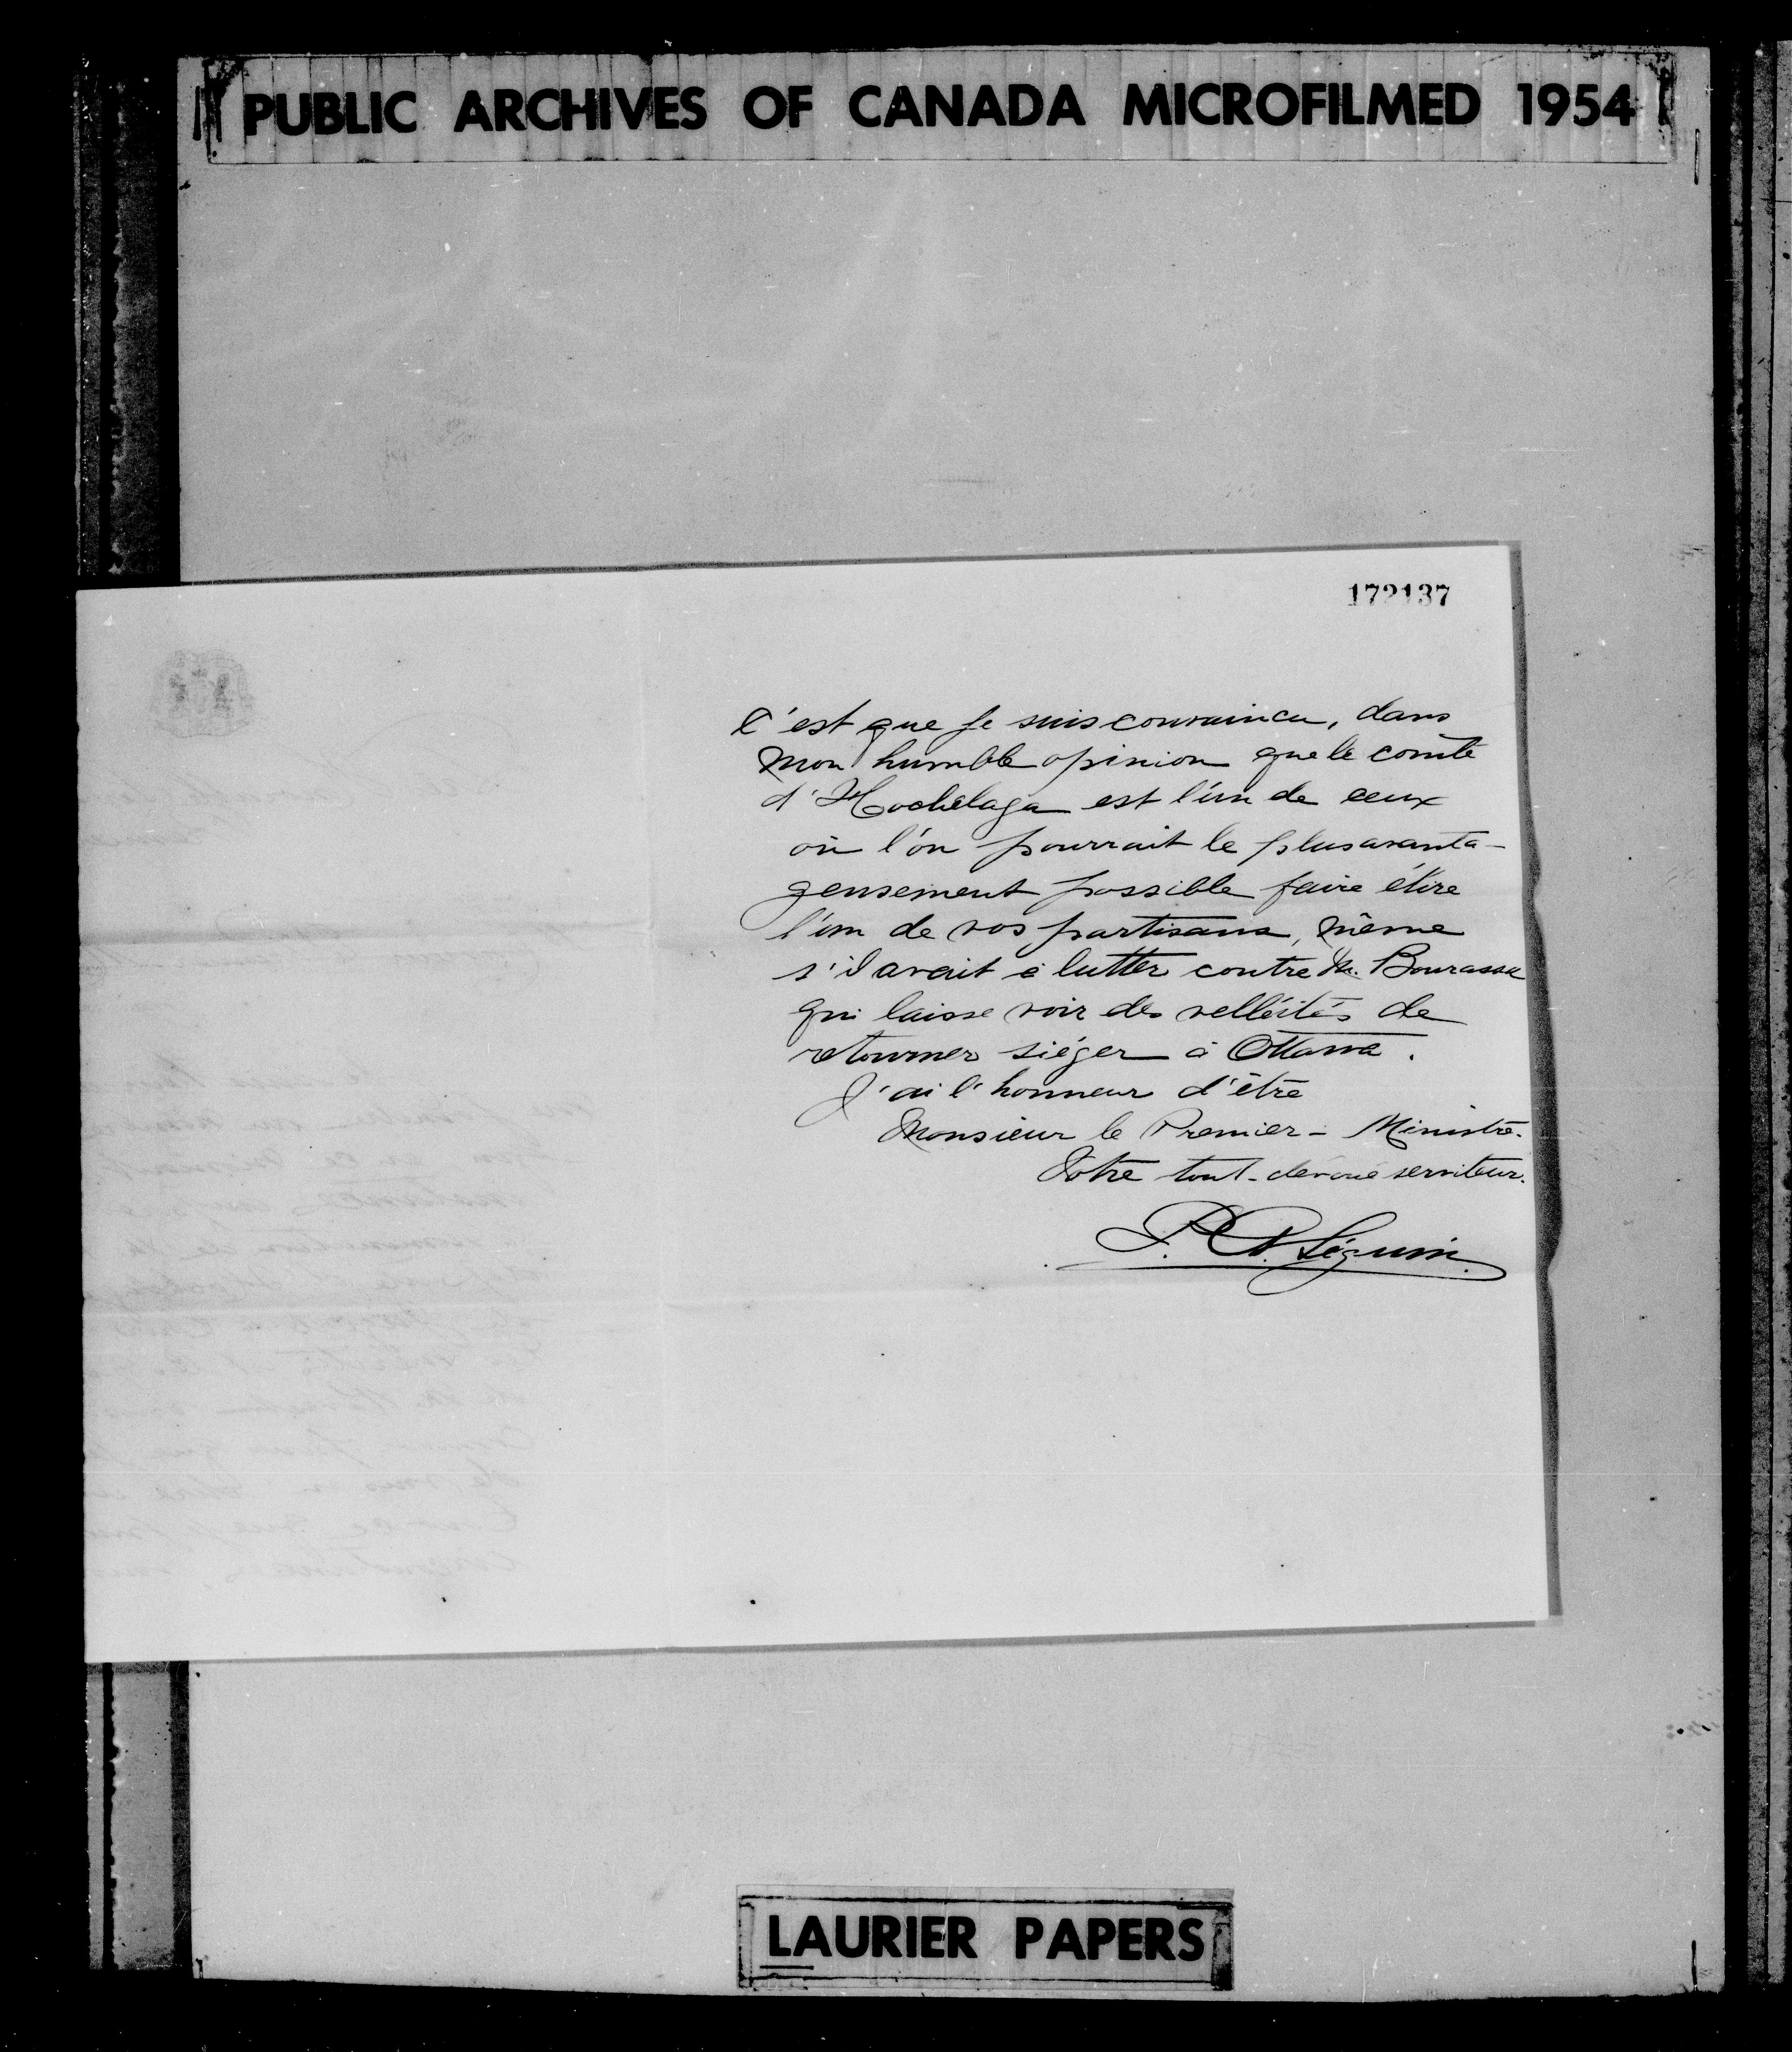 PUBLIC ARCHIVES OF CANADA MICROFILMED 1954
172137
C'est que je suis convaincu, dans
mon humble opinion que le comté
d'Hochelaga est l'un de ceux
où l'on pourrait le plus avanta-
geusement possible faire élire
l'un de vos partisans, même
s'il avait à lutter contre M. Bourassa
qui laisse voir des velléités de
retourner siéger à Ottawa.
J'ai l'honneur d'être
Monsieur le Premier-Ministre.
Votre tout-dévoué serviteur.
Séguin.
LAURIER PAPERS